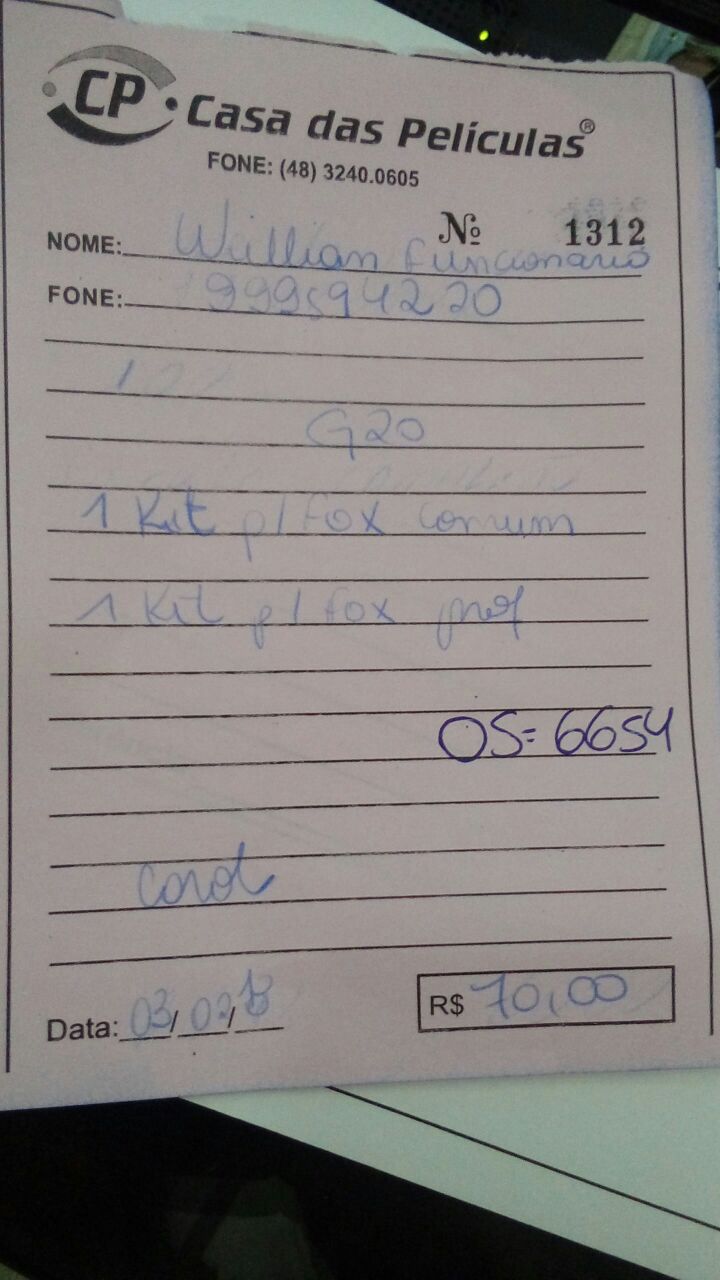 CP Casa das Películas®
FONE: (48) 3240.0605
Nº 1312
NOME: Willian funcionario
FONE: 999594220
G20
1 Kit p/ fox comum
1 Kit p/ fox
OS= 6654
Carol
Data: 03/02/
R$ 70,00